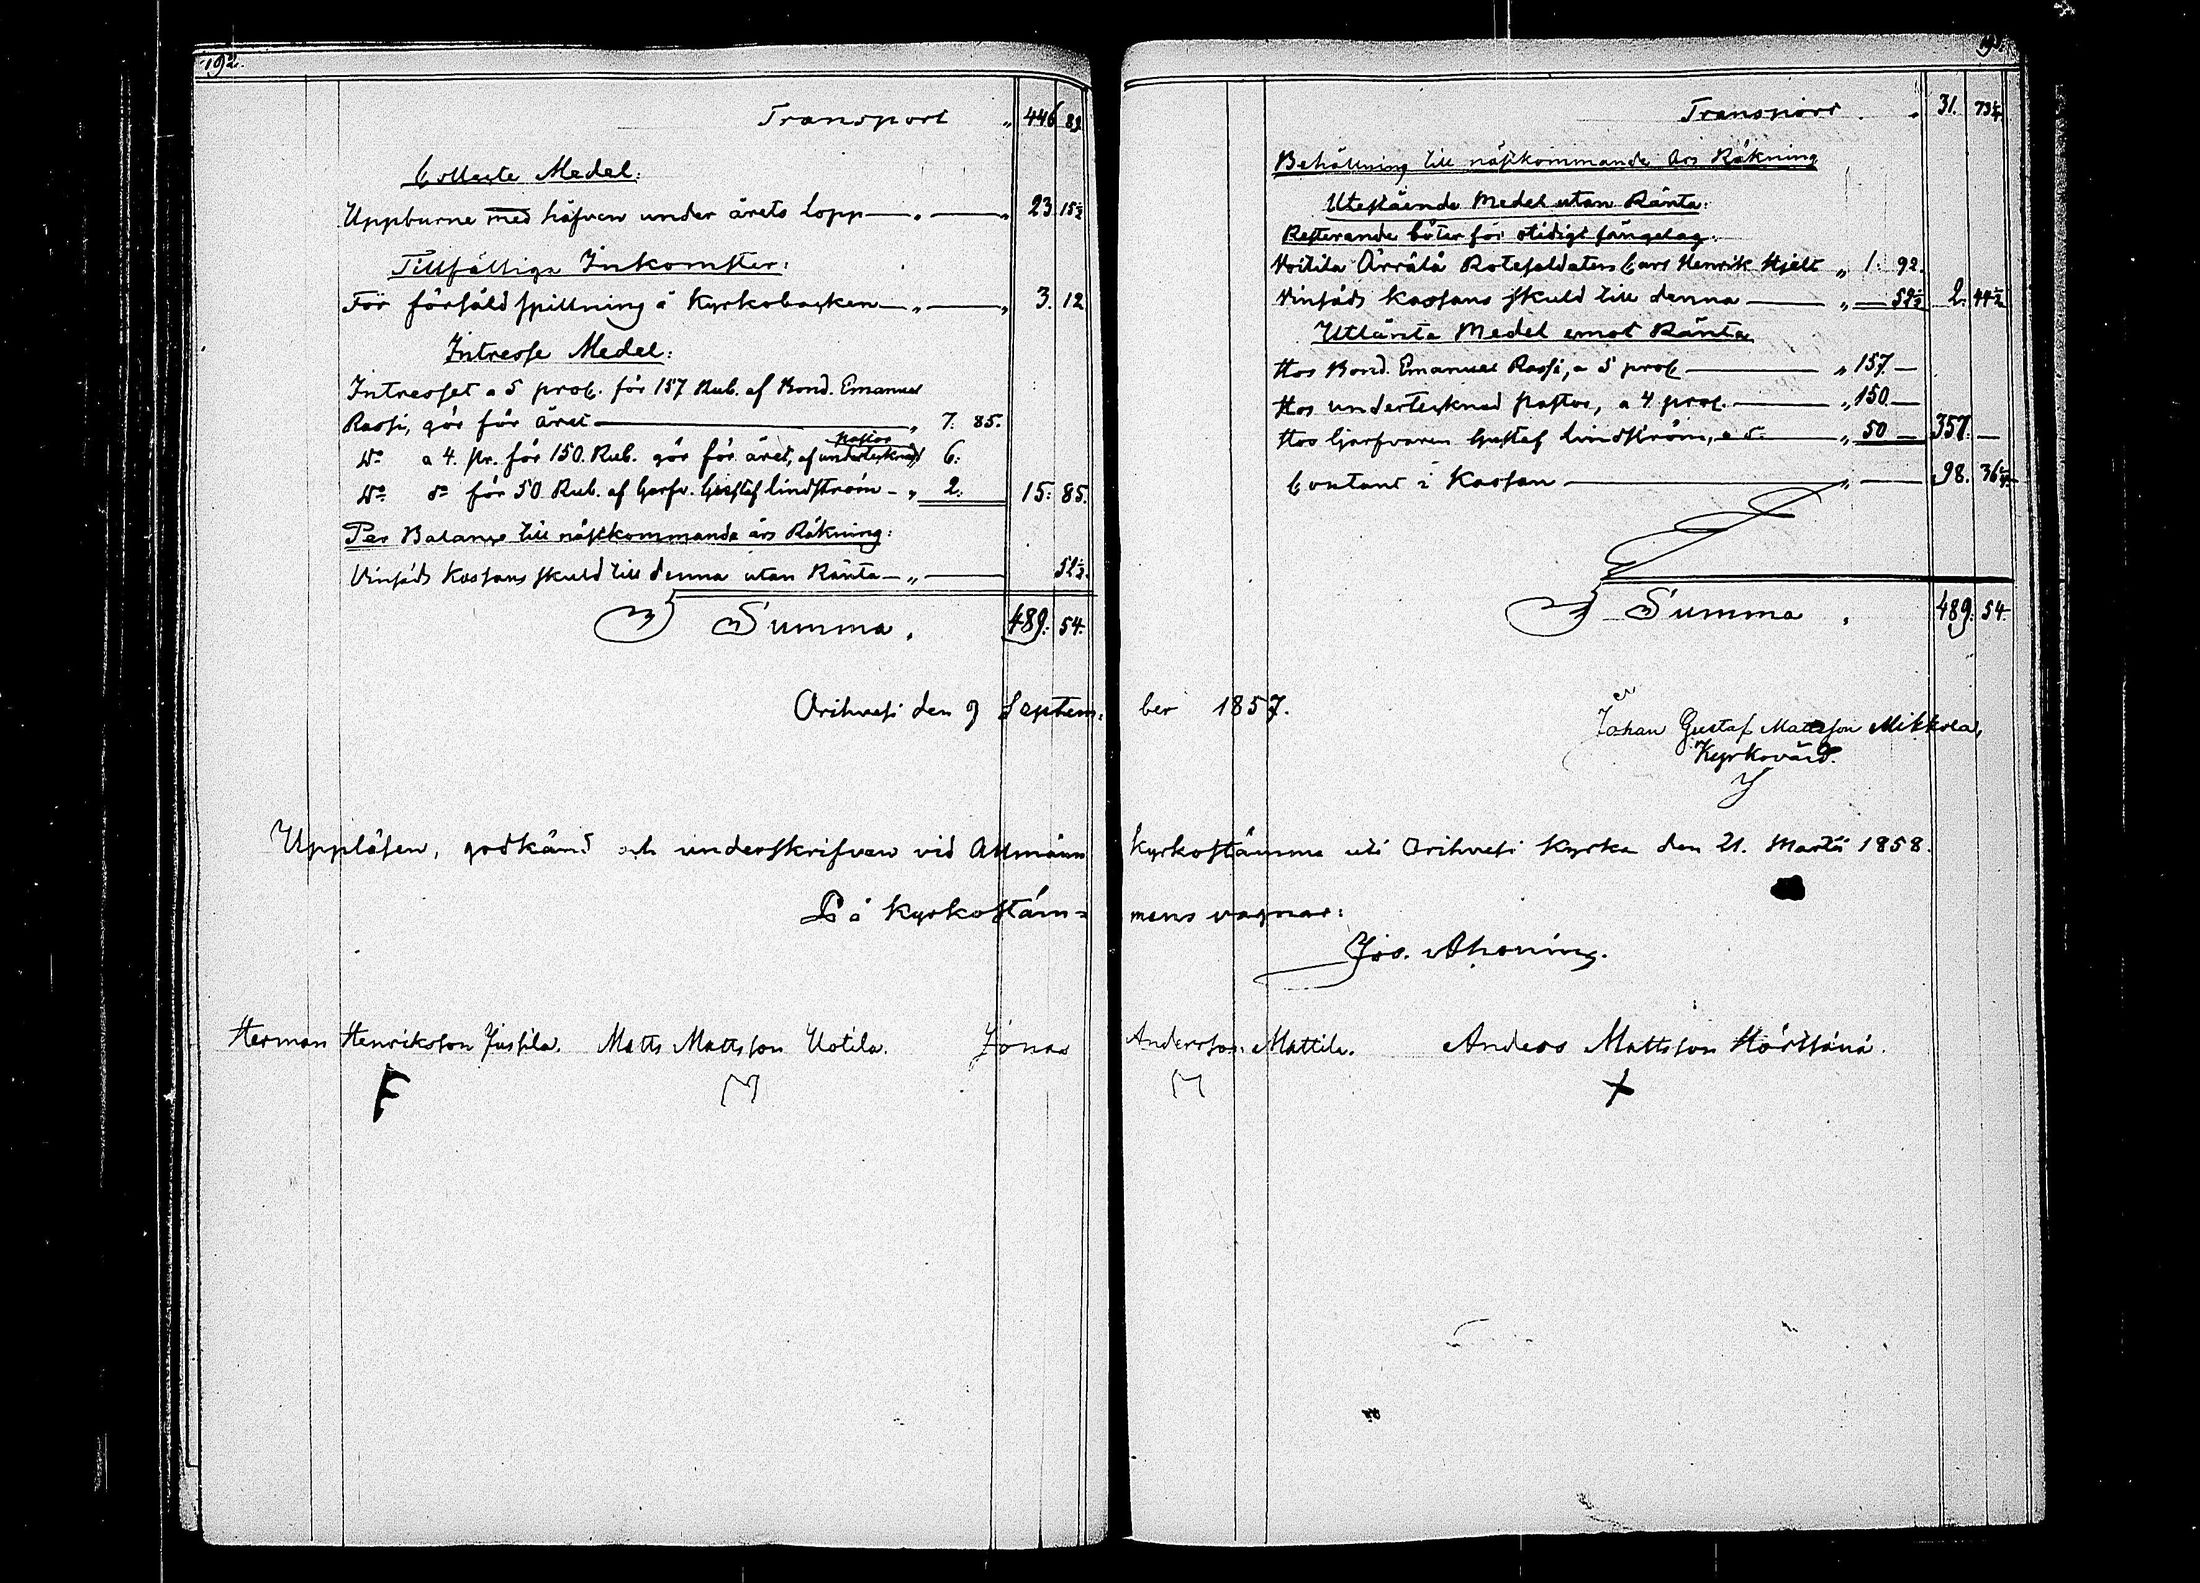 192.
Transport " 446 89
Collecte Medel:
Uppburne med håfven under årets lopp — " — " 23 15½
Tillfällige Inkomster:
För försåld spillning å Kyrkobacken — " — " 3. 12
Intresse Medel:
Intresset a 5 proc. för 157 Rub. af Bond. Emanuel
Rassi, gör för året — " 7. 85.
pastor
Do a 4. pr. för 150. Rub. gör för året, af undertecknad 6:
Do do för 50 Rub. af Garfv. Gustaf Lindström — " 2. 15. 85.
Per Balance till nästkommande års Räkning:
Vinsäds Kassans skuld till denna utan Ränta — " — 52½.
Summa. 489. 54.
Transport " 31. 73¼
Behållning till nästkommande års Räkning
Utestående Medel utan Ränta:
Resterande böter för otidigt sängelag.
Voitila Ärrälä Rotesoldaten Carl Henrik Hjelt " 1. 92.
Vinsäds Kassans skuld till denna — " 52½ 2. 44½
Utlänte Medel emot Ränta
Hos Bond. Emanuel Rassi, a 5 proc — " 157. —
Hos undertecknad Pastor, a 4 proc. — " 150 —
Hos Garfvaren Gustaf Lindström, a do — " 50 — 357. —
Contant i Kassan — " — 98. 36¼
Summa. 489. 54.
Orihvesi den 9 September 1857.
Johan Gustaf Mattsson Mikkola,
Kyrkovärd.
Uppläsen, godkänd och underskrifven vid Allmänn Kyrkostämma uti Orihvesi Kyrka den 21. Martii 1858.
På Kyrkostäm= mens vägnar:
Jos. Ahoning.
Herman Henriksson Jussila. Matts Mattsson Uotila. Jonas Andersson Mattila. Anders Mattsson Hörtsänä.
F M M X